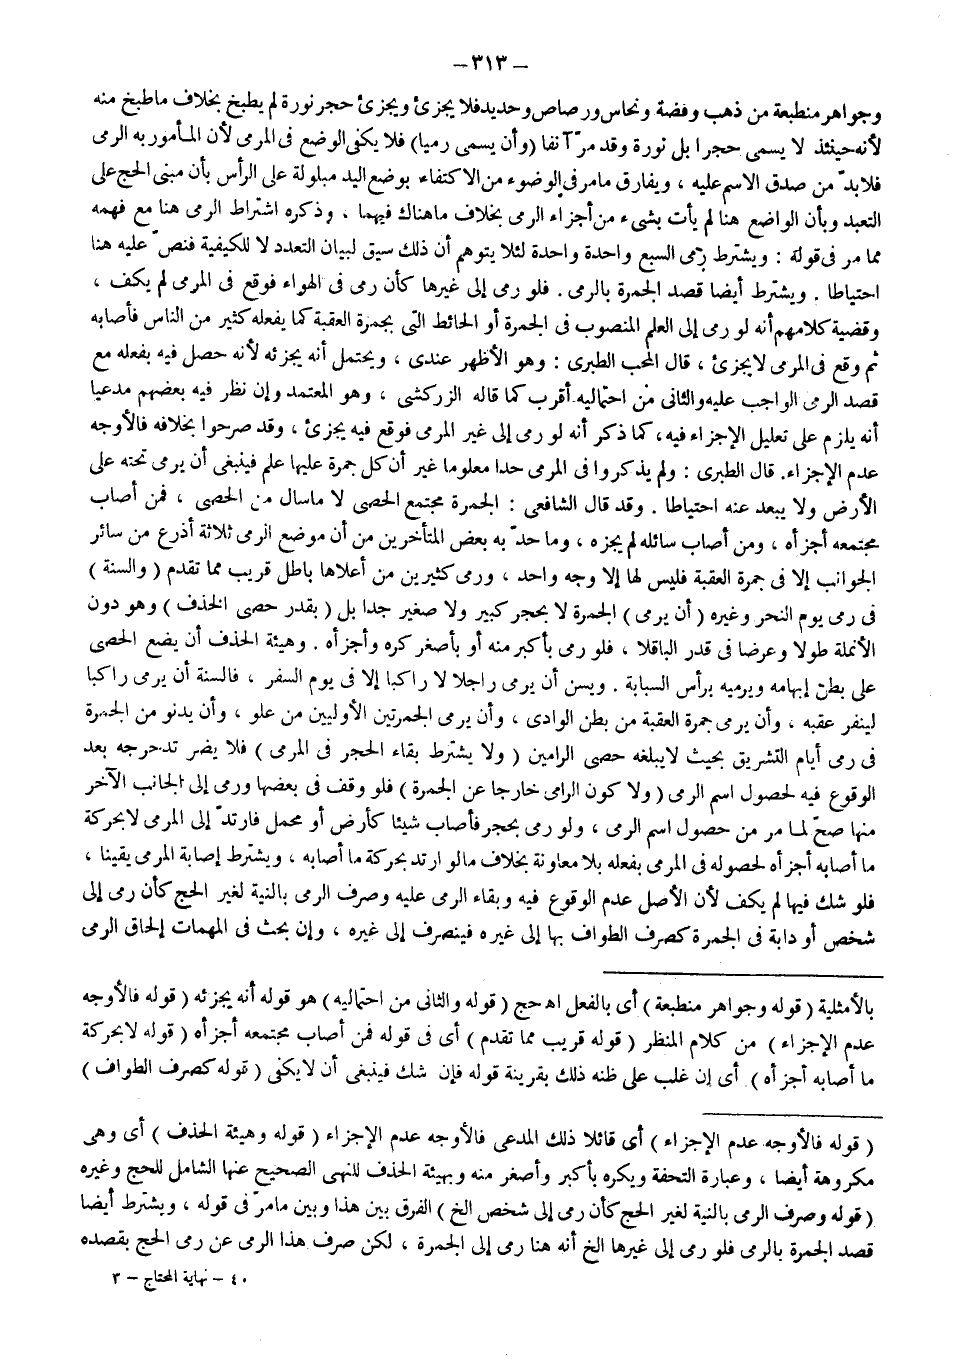 – ٣١٣ –
وجواهر منطبعة من ذهب وفضة ونحاس ورصاص وحديد فلا يجزئ ويجزئ حجر نورة لم يطبخ بخلاف ما طبخ منه
لأنه حينئذ لا يسمى حجرا بل نورة وقد مرّ آنفا (وأن يسمى رميا) فلا يكفى الوضع فى المرمى لأن المأمور به الرمى
فلابدّ من صدق الاسم عليه ، ويفارق مامر فى الوضوء من الاكتفاء بوضع اليد مبلولة على الرأس بأن مبنى الحج على
التعبد وبأن الواضع هنا لم يأت بشىء من أجزاء الرمى بخلاف ماهناك فيهما ، وذكره اشتراط الرمى هنا مع فهمه
مما مر فى قوله : ويشترط رمى السبع واحدة واحدة لئلا يتوهم أن ذلك سيق لبيان التعدد لا للكيفية فنصّ عليه هنا
احتياطا . ويشترط أيضا قصد الجمرة بالرمى . فلو رمى إلى غيرها كأن رمى فى الهواء فوقع فى المرمى لم يكف ،
وقضية كلامهم أنه لو رمى إلى العلم المنصوب فى الجمرة أو الحائط التى بجمرة العقبة كما يفعله كثير من الناس فأصابه
ثم وقع فى المرمى لا يجزئ ، قال المحب الطبرى : وهو الأظهر عندى ، ويحتمل أنه يجزئه لأنه حصل فيه بفعله مع
قصد الرمى الواجب عليه والثانى من احتماليه أقرب كما قاله الزركشى ، وهو المعتمد وإن نظر فيه بعضهم مدعيا
أنه يلزم على تعليل الإجزاء فيه ، كما ذكر أنه لو رمى إلى غير المرمى فوقع فيه يجزئ ، وقد صرحوا بخلافه فالأوجه
عدم الإجزاء. قال الطبرى : ولم يذكروا فى المرمى حدا معلوما غير أن كل جمرة عليها علم فينبغى أن يرمى تحته على
الأرض ولا يبعد عنه احتياطا . وقد قال الشافعى : الجمرة مجتمع الحصى لا ماسال من الحصى ، فمن أصاب
مجتمعه أجزأه ، ومن أصاب سائله لم يجزه ، وما حدّ به بعض المتأخرين من أن موضع الرمى ثلاثة أذرع من سائر
الجوانب إلا فى جمرة العقبة فليس لها إلا وجه واحد ، ورمى كثيرين من أعلاها باطل قريب مما تقدم ( والسنة )
فى رمى يوم النحر وغيره ( أن يرمى ) الجمرة لا بحجر كبير ولا صغير جدا بل ( بقدر حصى الخذف ) وهو دون
الأنملة طولا وعرضا فى قدر الباقلا ، فلو رمى بأكبر منه أو بأصغر كره وأجزأه . وهيئة الخذف أن يضع الحصى
على بطن إبهامه ويرميه برأس السبابة . ويسن أن يرمى راجلا لا راكبا إلا فى يوم السفر ، فالسنة أن يرمى راكبا
لينفر عقبه ، وأن يرمى جمرة العقبة من بطن الوادى ، وأن يرمى الجمرتين الأوليين من علو ، وأن يدنو من الجمرة
فى رمى أيام التشريق بحيث لايبلغه حصى الرامين ( ولا يشترط بقاء الحجر فى المرمى ) فلا يضر تدحرجه بعد
الوقوع فيه لحصول اسم الرمى ( ولا كون الرامى خارجا عن الجمرة ) فلو وقف فى بعضها ورمى إلى الجانب الآخر
منها صحّ لما مر من حصول اسم الرمى ، ولو رمى بحجر فأصاب شيئا كأرض أو محمل فارتدّ إلى المرمى لابحركة
ما أصابه أجزأه لحصوله فى المرمى بفعله بلا معاونة بخلاف مالو ارتد بحركة ما أصابه ، ويشترط إصابة المرمى يقينا ،
فلو شك فيها لم يكف لأن الأصل عدم الوقوع فيه وبقاء الرمى عليه وصرف الرمى بالنية لغير الحج كأن رمى إلى
شخص أو دابة فى الجمرة كصرف الطواف بها إلى غيره فينصرف إلى غيره ، وإن بحث فى المهمات إلحاق الرمى
بالأمثلية ( قوله وجواهر منطبعة ) أى بالفعل اهـ حج ( قوله والثانى من احتماليه ) هو قوله أنه يجزئه ( قوله فالأوجه
عدم الإجزاء ) من كلام المنظر ( قوله قريب مما تقدم ) أى فى قوله فمن أصاب مجتمعه أجزأه ( قوله لابحركة
ما أصابه أجزأه ) أى إن غلب على ظنه ذلك بقرينة قوله فإن شك فينبغى أن لايكفى ( قوله كصرف الطواف )
( قوله فالأوجه عدم الإجزاء ) أى قائلا ذلك المدعى فالأوجه عدم الإجزاء ( قوله وهيئة الخذف ) أى وهى
مكروهة أيضا ، وعبارة التحفة ويكره بأكبر وأصغر منه وبهيئة الخذف للنهى الصحيح عنها الشامل للحج وغيره
( قوله وصرف الرمى بالنية لغير الحج كأن رمى إلى شخص الخ ) الفرق بين هذا وبين مامرّ فى قوله ، ويشترط أيضا
قصد الجمرة بالرمى فلو رمى إلى غيرها الخ أنه هنا رمى إلى الجمرة ، لكن صرف هذا الرمى عن رمى الحج بقصده
٤٠ – نهاية المحتاج – ٣